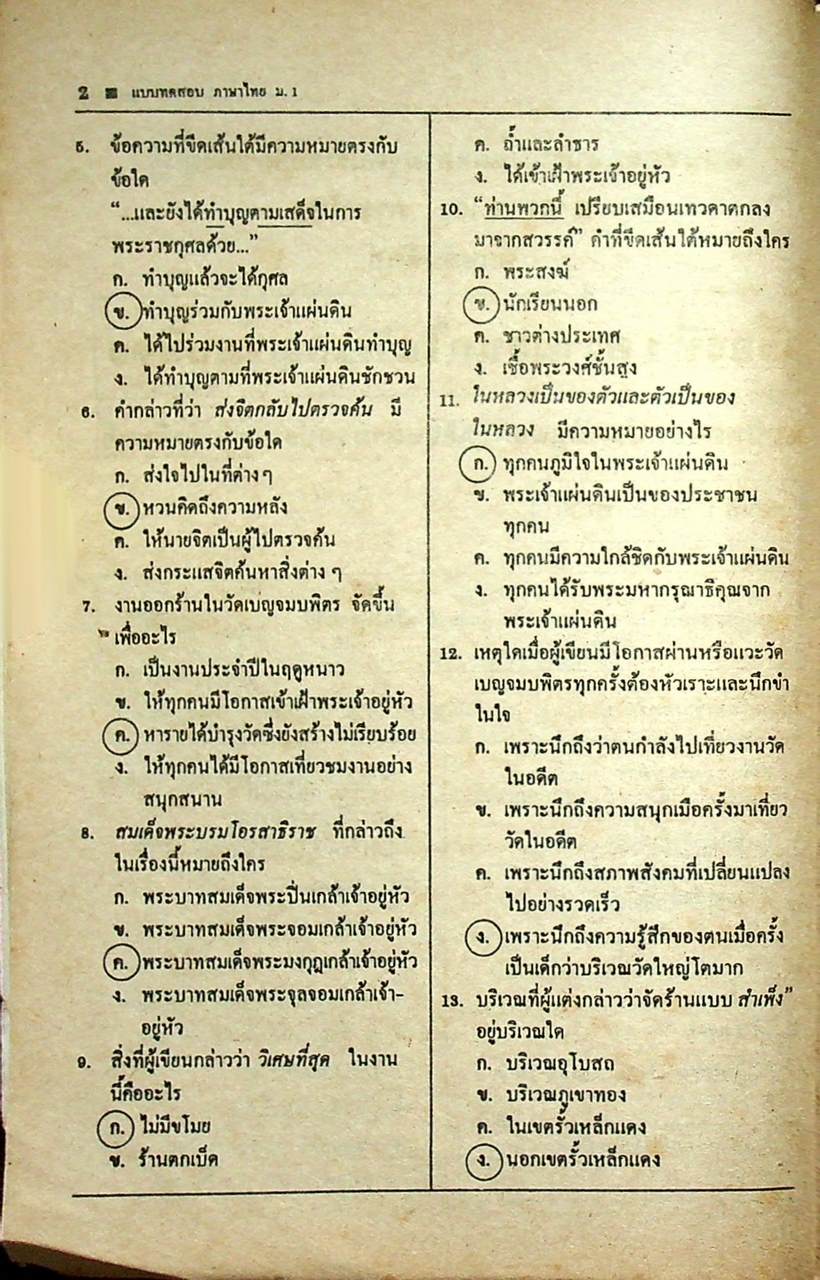 2 ▦ แบบทดสอบ ภาษาไทย ม. 1
5. ข้อความที่ขีดเส้นใต้มีความหมายตรงกับ
ข้อใด
“...และยังได้ทำบุญตามเสด็จในการ
พระราชกุศลด้วย...”
ก. ทำบุญแล้วจะได้กุศล
ข. ทำบุญร่วมกับพระเจ้าแผ่นดิน
ค. ได้ไปร่วมงานที่พระเจ้าแผ่นดินทำบุญ
ง. ได้ทำบุญตามที่พระเจ้าแผ่นดินชักชวน
6. คำกล่าวที่ว่า ส่งจิตกลับไปตรวจค้น มี
ความหมายตรงกับข้อใด
ก. ส่งใจไปในที่ต่าง ๆ
ข. หวนคิดถึงความหลัง
ค. ให้นายจิตเป็นผู้ไปตรวจค้น
ง. ส่งกระแสจิตค้นหาสิ่งต่าง ๆ
7. งานออกร้านในวัดเบญจมบพิตร จัดขึ้น
เพื่ออะไร
ก. เป็นงานประจำปีในฤดูหนาว
ข. ให้ทุกคนมีโอกาสเข้าเฝ้าพระเจ้าอยู่หัว
ค. หารายได้บำรุงวัดซึ่งยังสร้างไม่เรียบร้อย
ง. ให้ทุกคนได้มีโอกาสเที่ยวชมงานอย่าง
สนุกสนาน
8. สมเด็จพระบรมโอรสาธิราช ที่กล่าวถึง
ในเรื่องนี้หมายถึงใคร
ก. พระบาทสมเด็จพระปิ่นเกล้าเจ้าอยู่หัว
ข. พระบาทสมเด็จพระจอมเกล้าเจ้าอยู่หัว
ค. พระบาทสมเด็จพระมงกุฎเกล้าเจ้าอยู่หัว
ง. พระบาทสมเด็จพระจุลจอมเกล้าเจ้า-
อยู่หัว
9. สิ่งที่ผู้เขียนกล่าวว่า วิเศษที่สุด ในงาน
นี้คืออะไร
ก. ไม่มีขโมย
ข. ร้านตกเบ็ด
ค. ถ้ำและลำธาร
ง. ได้เข้าเฝ้าพระเจ้าอยู่หัว
10. “ท่านพวกนี้ เปรียบเสมือนเทวดาตกลง
มาจากสวรรค์” คำที่ขีดเส้นใต้หมายถึงใคร
ก. พระสงฆ์
ข. นักเรียนนอก
ค. ชาวต่างประเทศ
ง. เชื้อพระวงศ์ชั้นสูง
11. ในหลวงเป็นของตัวและตัวเป็นของ
ในหลวง มีความหมายอย่างไร
ก. ทุกคนภูมิใจในพระเจ้าแผ่นดิน
ข. พระเจ้าแผ่นดินเป็นของประชาชน
ทุกคน
ค. ทุกคนมีความใกล้ชิดกับพระเจ้าแผ่นดิน
ง. ทุกคนได้รับพระมหากรุณาธิคุณจาก
พระเจ้าแผ่นดิน
12. เหตุใดเมื่อผู้เขียนมีโอกาสผ่านหรือแวะวัด
เบญจมบพิตรทุกครั้งต้องหัวเราะและนึกขำ
ในใจ
ก. เพราะนึกถึงว่าตนกำลังไปเที่ยวงานวัด
ในอดีต
ข. เพราะนึกถึงความสนุกเมื่อครั้งมาเที่ยว
วัดในอดีต
ค. เพราะนึกถึงสภาพสังคมที่เปลี่ยนแปลง
ไปอย่างรวดเร็ว
ง. เพราะนึกถึงความรู้สึกของตนเมื่อครั้ง
เป็นเด็กว่าบริเวณวัดใหญ่โตมาก
13. บริเวณที่ผู้แต่งกล่าวว่าจัดร้านแบบ สำเพ็ง”
อยู่บริเวณใด
ก. บริเวณอุโบสถ
ข. บริเวณภูเขาทอง
ค. ในเขตรั้วเหล็กแดง
ง. นอกเขตรั้วเหล็กแดง